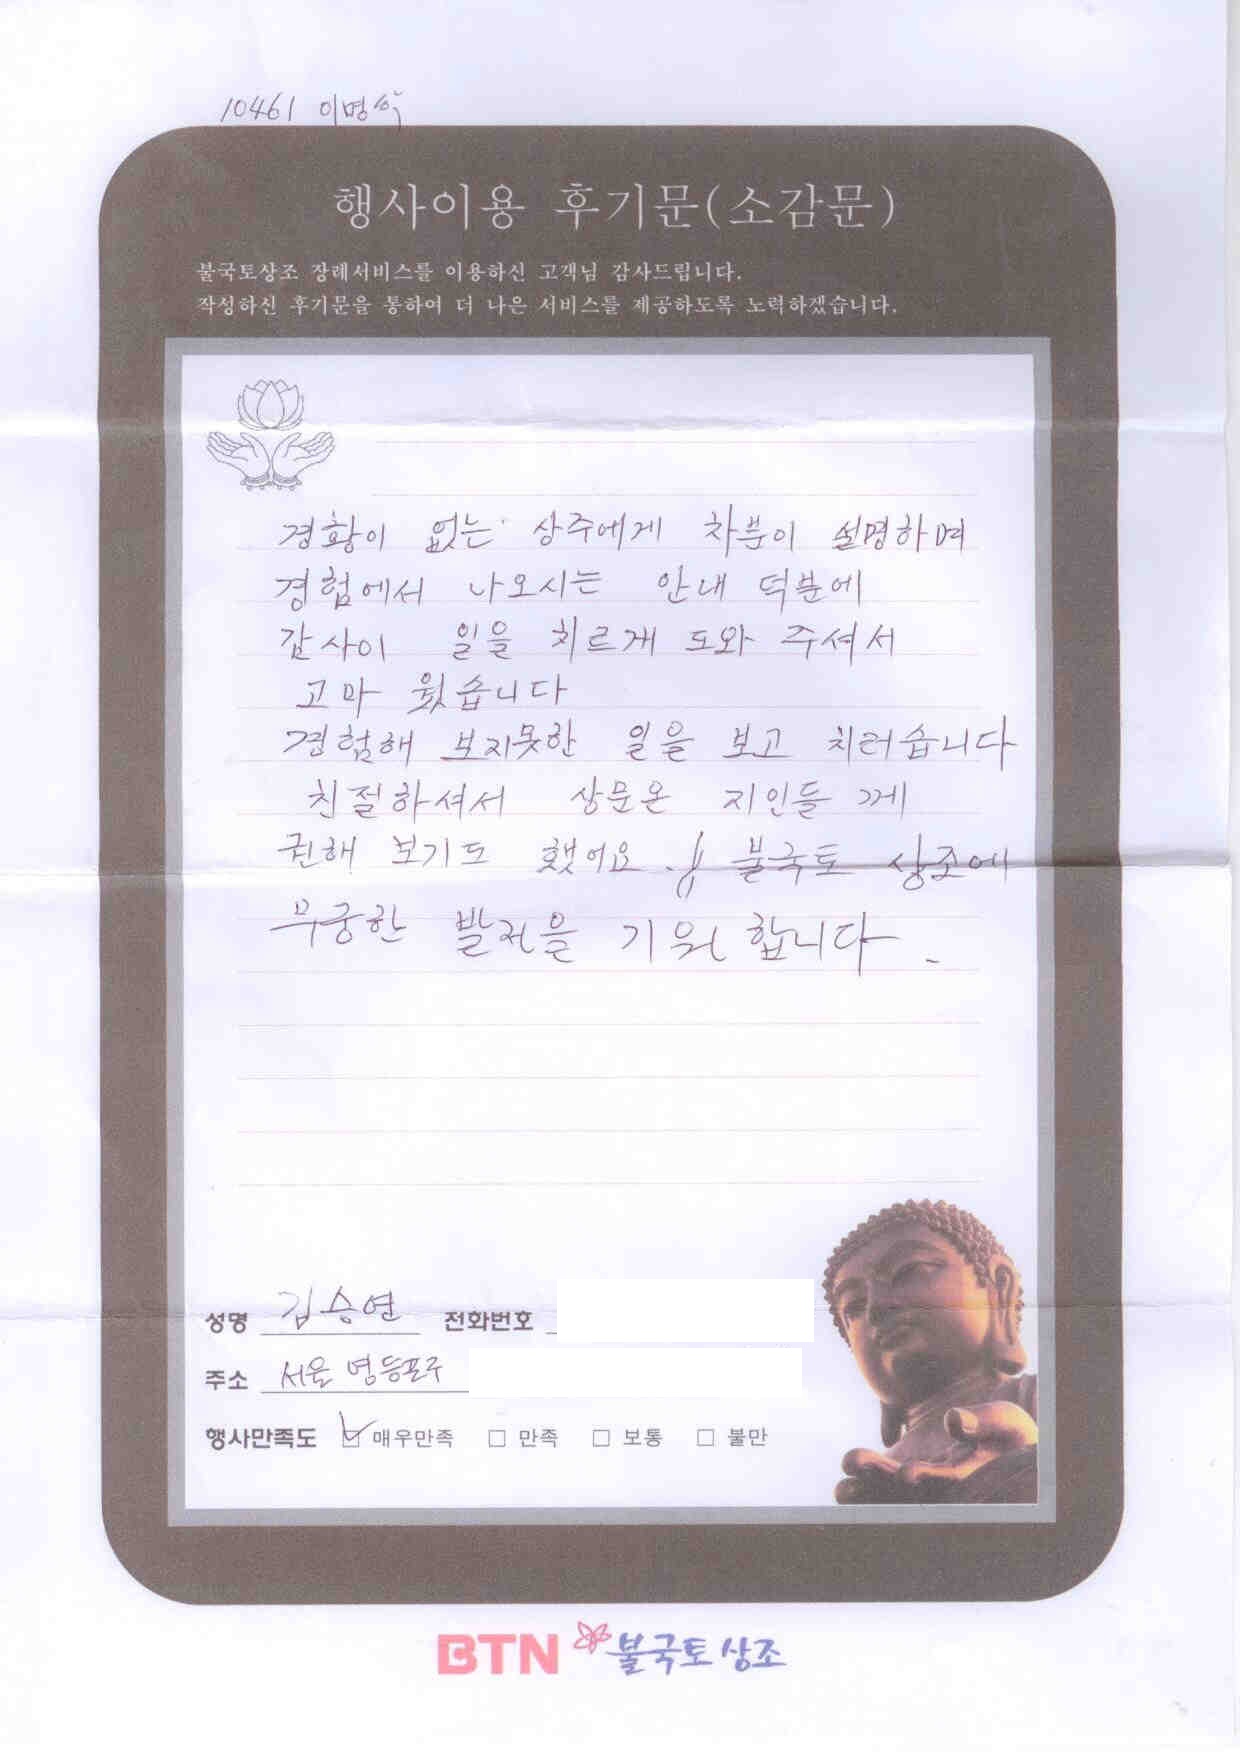 10461 이명수
행사이용 후기문(소감문)
불국토상조 장례서비스를 이용하신 고객님 감사드립니다.
작성하신 후기문을 통하여 더 나은 서비스를 제공하도록 노력하겠습니다.
경황이 없는 상주에게 차분이 설명하며
경험에서 나오시는 안내 덕분에
감사이 일을 치르게 도와 주셔서
고마 웠습니다
경험해 보지못한 일을 보고 치러습니다
친절하셔서 상문온 지인들 께
권해 보기도 했어요. 불국토 상조에
무궁한 발전을 기원 합니다.
성명 김승연 전화번호
주소 서울 영등포구
행사만족도 ☑ 매우만족 □ 만족 □ 보통 □ 불만
BTN 불국토상조